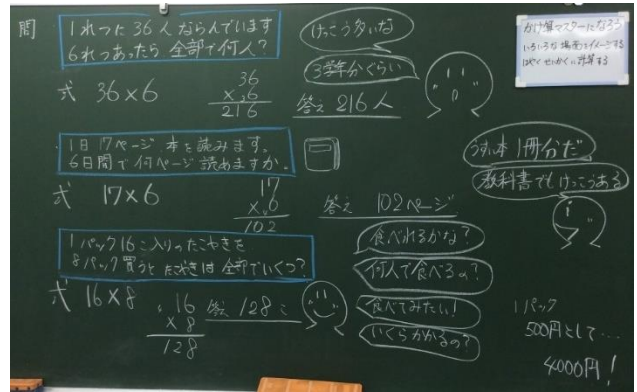 問
1れつに36人ならんでいます
6れつあったら全部で何人?
式 36×6
36
×6
216
答え 216人
けっこう多いな
3学年分ぐらい
かけ算マスターになろう
いろいろな場面をイメージする
はやくせいかくに計算する
1日17ページ本を読みます。
6日間で何ページ読めますか。
式 17×6
17
×6
102
答え 102ページ
うすい本1冊分だ
教科書でもけっこうある
1パック16こ入りのたこやきを
8パック買うとたこやきは全部でいくつ?
式 16×8
16
×8
128
答え 128こ
食べれるかな?
何人で食べるの?
食べてみたい!
いくらかかるの?
1パック
500円として…
4000円!